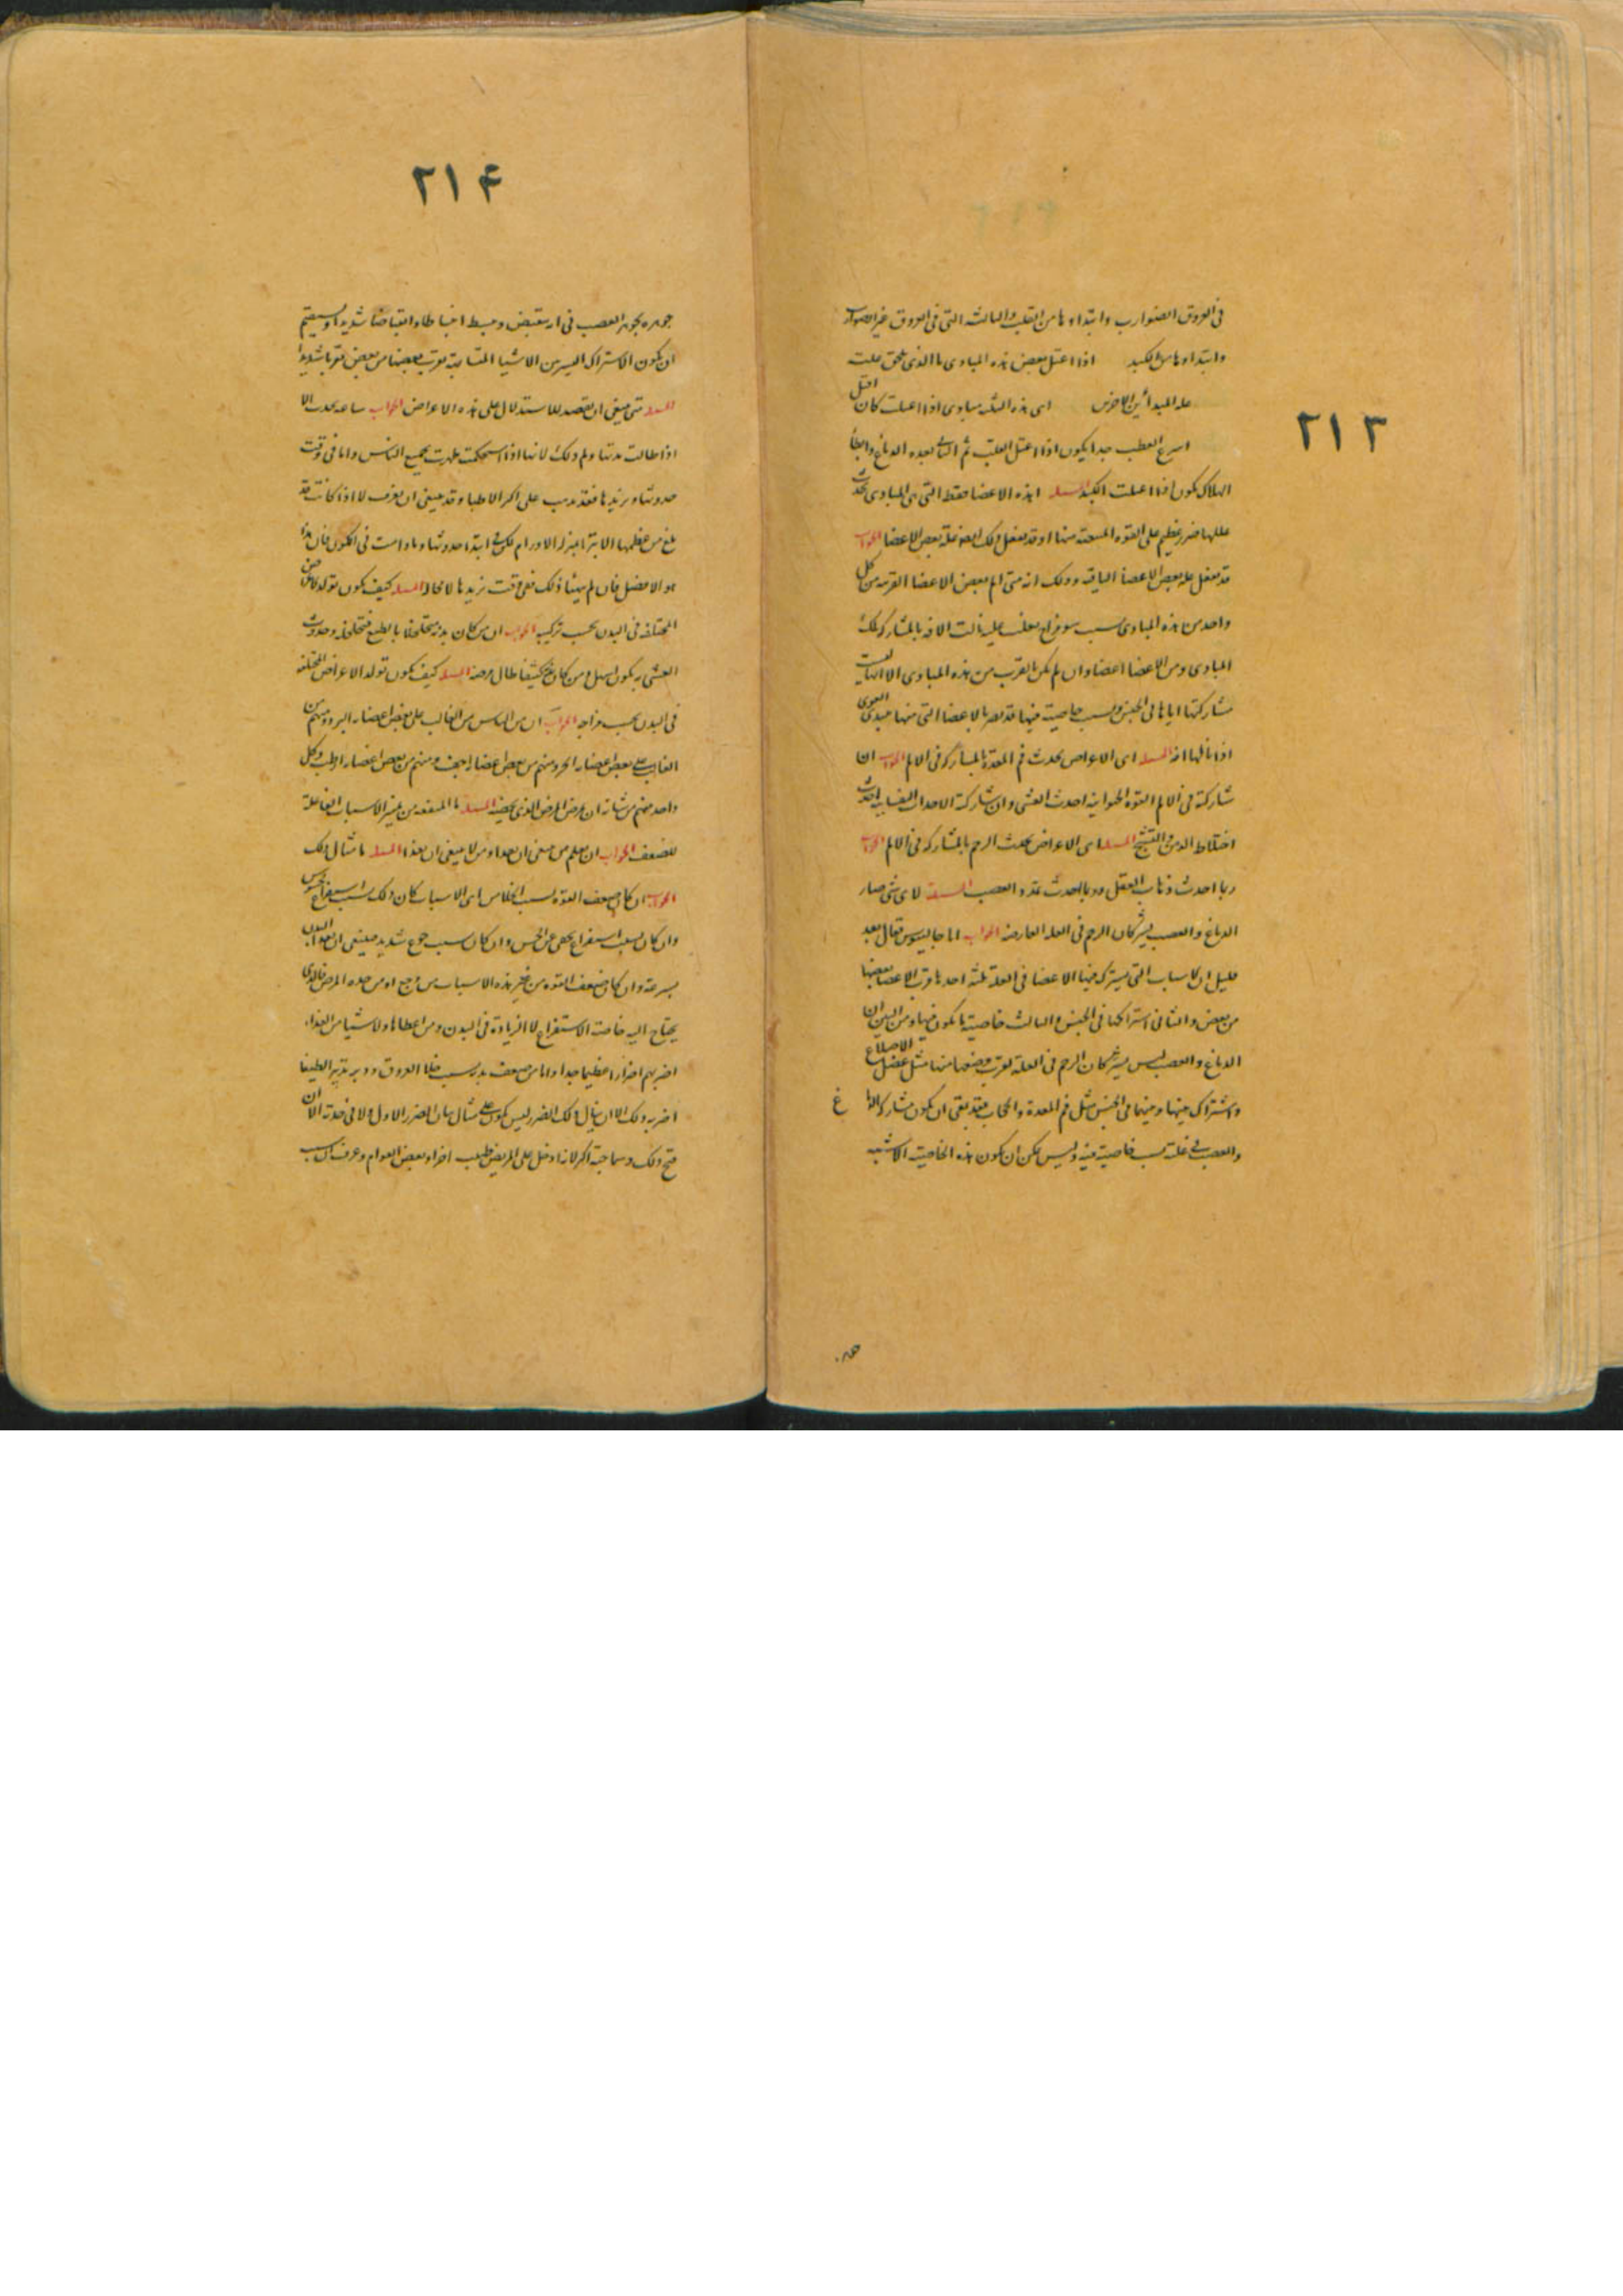 ٢١٣
في العروق الضوارب وابتداوها من القلب والثالث التي في العروق غير الضوارب
وابتداوها من الكبد اذا اعتل بعض هذه المبادى ما الذى يلحق
عله المبدأين الاخرين اى هذه الثلثه مبادى اذا اعتلت كان
اسرع العطب جدا يكون اذا اعتل القلب ثم الثانى بعده الدماغ وابطأ
الهلاك يكون اذا اعتلت الكبد المسله اهذه الاعضا فقط التى هى المبادى تحدث
عللها ضرر عظيم على القوه المنبعثه منها او قد يفعل ذلك ايضا علة بعض الاعضا الجواب
قد يفعل عله بعض الاعضا الباقيه وذلك انه متى الم بعض الاعضا القريبه من كل
واحد من هذه المبادى بسبب سو مزاج يغلب عليه نالت الافه بالمشاركه تلك
المبادى ومن الاعضا اعضا وان لم تكن بالقرب من هذه المبادى الا انها
مشاركتها اياها فى الجنس وبسبب خاصية فيها قد تضر بالاعضا التى منها مبدى القوى
اذا نالها افه المسله اى الاعراض يحدث فم المعدة بالمشاركه فى الالم الجواب ان
شاركته فى الالم القوه الحيوانيه احدث الغشى وان شاركته الافعال النفسانيه احدث
اختلاط الذهن والتشنج المسله اى الاعراض يحدث الرحم بالمشاركه فى الالم الجواب
ربما احدث ذهاب العقل وربما احدث تمدد العصب المسله لاى شى صار
الدماغ والعصب يشركان الرحم فى العله العارضه الجواب اما جالينوس فقال بعد
قليل ان الاسباب التى يشترك فيها الاعضا فى العلة ثلثه احدها قرب الاعضا بعضها
من بعض والثانى اشتراكها فى الجنس والثالث خاصية ما يكون فيها ومن البين ان
الدماغ والعصب ليس يشركان الرحم فى العله لقرب وضعها منها مثل عضل الاضلاع
واشتراك بينها وبينهما فى الجنس مثل فم المعدة والحجاب فقد بقى ان يكون مشاركه الدما غ
والعصب فى علته بسبب خاصية فيه وليس يمكن ان يكون هذه الخاصية الا شبه
٢١۴
جوهره بجوهر العصب فى ان ينقبض وينبسط انبساطا وانقباضا شديدا ويستقيم
ان يكون الاشتراك اليسير بين الاشيا المتشابهة يقرب بعضها من بعض تقربا شديدا
المسله متى ينبغى ان يقصد للاستدلال على هذه الاعراض الجواب ساعه يحدث الا
اذا طالت مدتها ولم ذلك لانها اذا استحكمت ظهرت لجميع الناس واما فى وقت
حدوثها وتزيدها فقد يذهب على اكثر الاطبا وقد ينبغى ان يعرف لا اذا كانت قد
بلغ من عظمها الا بترا بمنزله الاورام لكن فى ابتدا حدوثها وما دامت فى التكون فان هذا
هو الافضل فان لم يتهيا ذلك ففى وقت تزيدها لا محاله المسله كيف يكون تولد الاعراض
المختلفه فى البدن بحسب تركيبه الجواب ان من كان بدنه متخلخلا بالطبع فتحلله وحدوث
الغشى به يكون اسهل ومن كان بدنه كثيفا طال مرضه المسله كيف يكون تولد الاعراض المختلفه
فى البدن بحسب مزاجه الجواب ان من الناس من الغالب على بعض اعضاه البرد ومنهم من
الغالب على بعض اعضاه الحر ومنهم من بعض اعضاه اجف ومنهم من بعض اعضاه ارطب وكل
واحد منهم من شانه ان يمرض المرض الذى يخصه المسله ما المنفعه من تمييز الاسباب الفاعلة
للضعف الجواب ان يعلم من ينبغى ان يغذاه ومن لا ينبغى ان يغذا المسله ما مثال ذلك
الجواب ان كان ضعف القوه بسبب الخلا من اى الاسباب كان وذلك بسبب استفراغ محسوس
وان كان بسبب استفراغ يخفى عن الحس وان كان بسبب جوع شديد فينبغى ان يغذا البدن
بسرعة وان كان ضعف القوه من غير هذه الاسباب من وجع او من حده المرض فالذى
يحتاج اليه خاصة الاستفراغ لا الزيادة فى البدن ومن اعطا هاولا شيا من الغذاء
اضر بهم اضرارا عظيما جدا واما من ضعف بدنه بسبب خلا العروق ودبر تدبير الطيفا
اضر به ذلك الا ان ذلك الضرر ليس يكون على مثال الضرر الاول ولا فى
قبح ذلك وسماجته اكثر لانه ادخل على المريض طبيب اخر او بعض العوام وعرف ان سبب